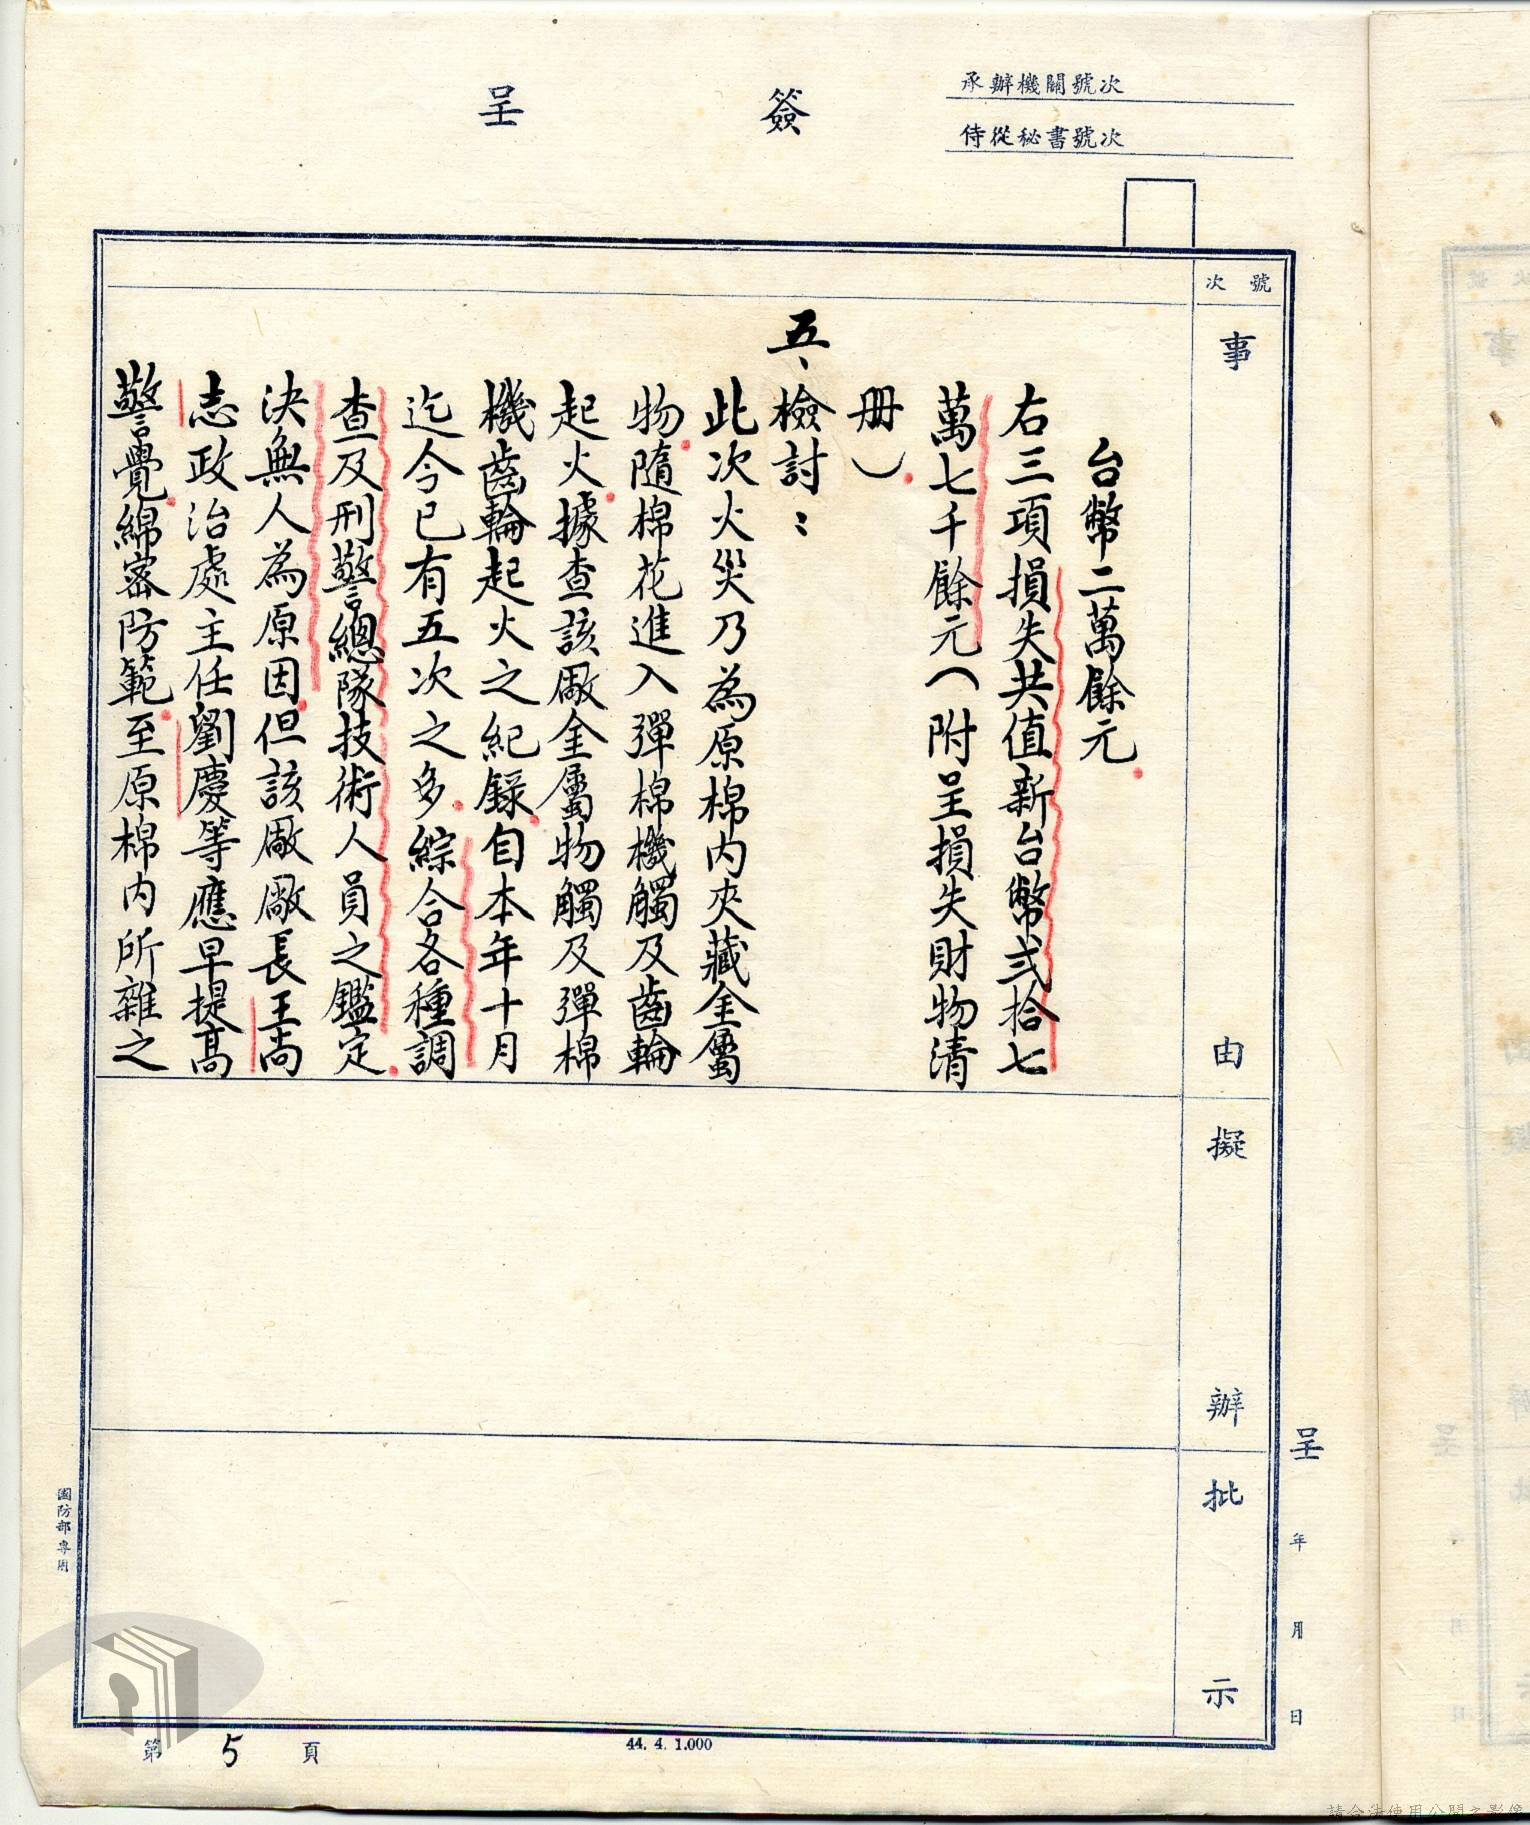 承辦機關號次
侍從秘書號次
簽呈
號次
事由
擬辦
批示
台幣二萬餘元
右三項損失共值新台幣弍拾七
萬七千餘元（附呈損失財物清
冊）
五、檢討：
此次火災乃為原棉內夾藏金屬
物隨棉花進入彈棉機觸及齒輪
起火據查該廠金屬物觸及彈棉
機齒輪起火之紀錄自本年十月
迄今已有五次之多綜合各種調
查及刑警總隊技術人員之鑑定
決無人為原因但該廠廠長王尚
志政治處主任劉慶等應早提高
警覺綿密防範至原棉內所雜之
呈 年 月 日
國防部專用
第5頁
44. 4. 1.000
請合法使用公開之影像